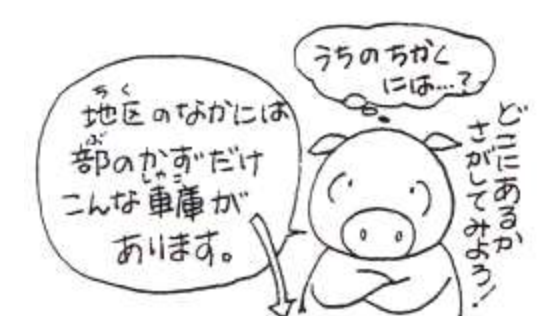 地区のなかには
部のかずだけ
こんな車庫が
あります。
うちのちかく
には…?
どこにあるか
さがしてみよう!